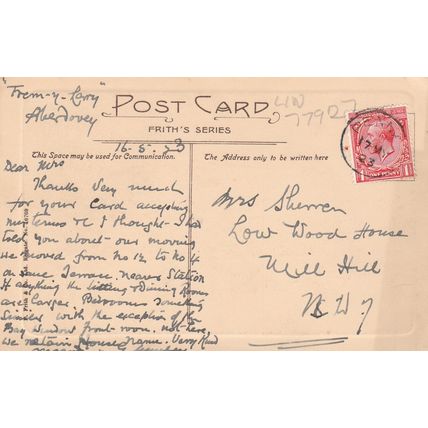 "Trem-y-Larry"
Aberdovey
POST CARD
FRITH'S SERIES
77927
16-5-23
This Space may be used for Communication.
The Address only to be written here
ONE PENNY
Dear Mrs
Thanks Very much
for your Card accepting
my terms &c I thought I had
told you about our moving
we moved from No 12 to No 4
on same Terrace. nearer Station
If anything the Sitting & Dining Rooms
are Larger. Bedrooms
Similar with the exception of the
Bay window front room. not here,
we retain House name. Very Kind
Mrs Sherren
Low Wood House
Mill Hill
N W 7